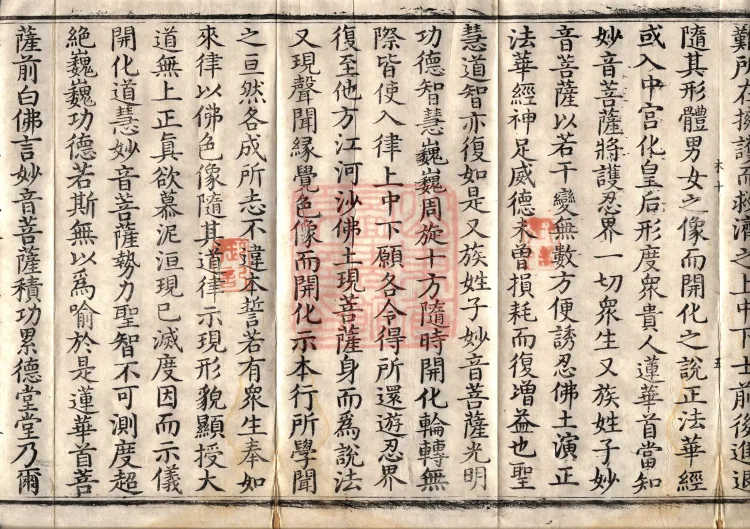 難所在擁護而救濟之上中下士前後進退
木十 五
隨其形體男女之像而開化之說正法華經
或入中宮化皇后形度衆貴人蓮華首當知
妙音菩薩將護忍界一切衆生又族姓子妙
音菩薩以若干變無數方便誘忍佛土演正
法華經神足威德未曾損耗而復增益也聖
慧道智亦復如是又族姓子妙音菩薩光明
功德智慧巍巍周旋十方隨時開化輪轉無
際皆使入律上中下願各令得所還遊忍界
復至他方江河沙佛土現菩薩身而爲說法
又現聲聞緣覺色像而開化示本行所學聞
之亘然各成所志不違本誓若有衆生奉如
來律以佛色像隨其道律示現形貌顯授大
道無上正眞欲慕泥洹現已滅度因而示儀
開化道慧妙音菩薩勢力聖智不可測度超
絕巍巍功德若斯無以爲喻於是蓮華首菩
薩前白佛言妙音菩薩積功累德堂堂乃爾